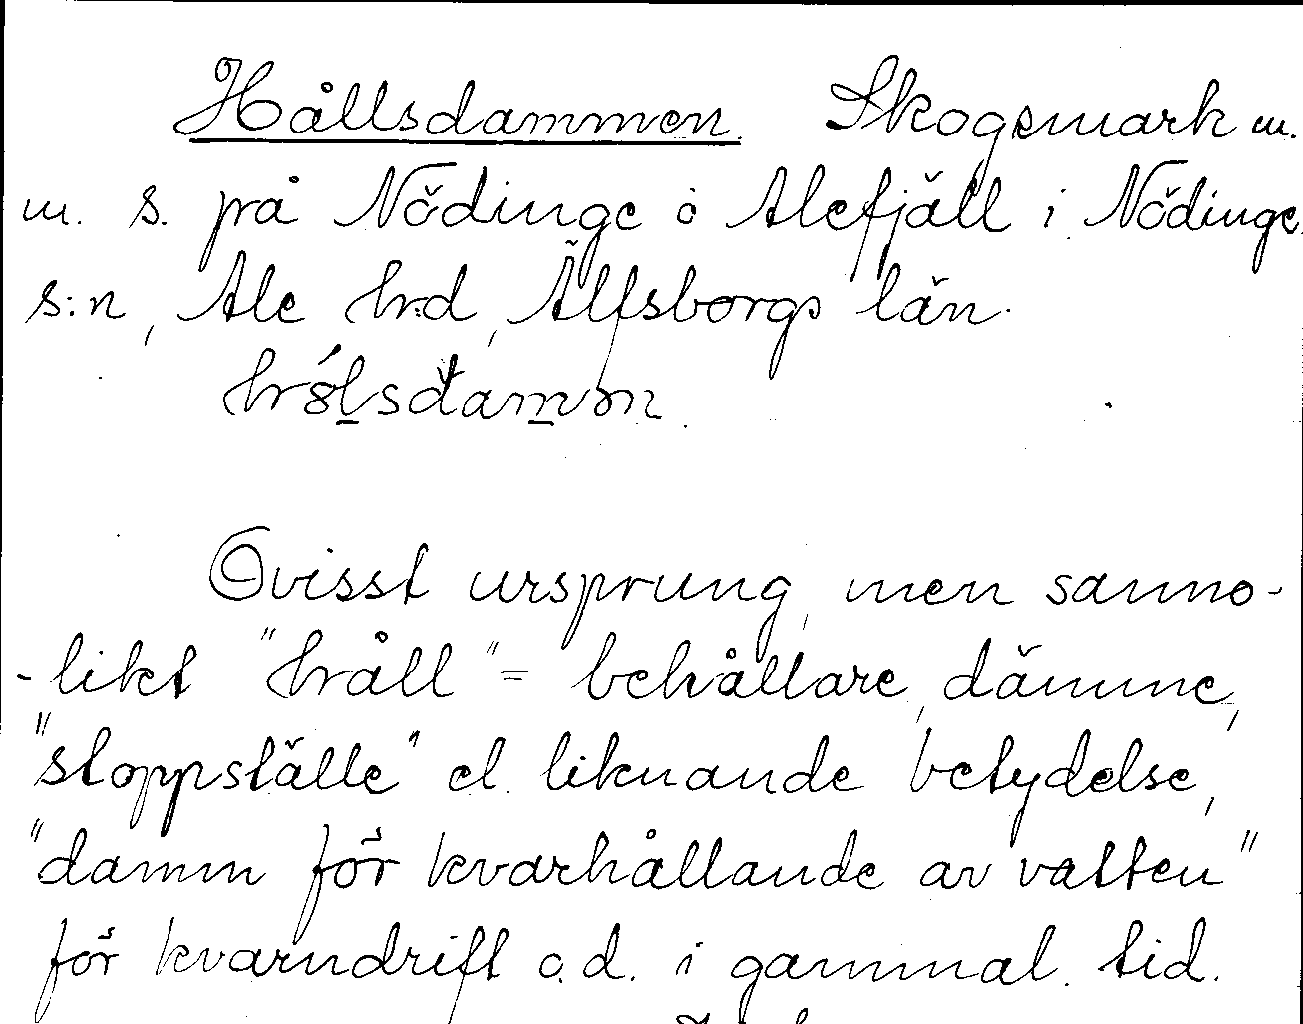 Hållsdammen. Skogsmark m.
m. s. på Nödinge ö Alefjäll i Nödinge
s:n, Ale h:d, Älfsborgs län.
Ovisst ursprung, men sanno-
-likt "håll" = behållare, dämme,
"stoppställe" el. liknande betydelse,
"damm för kvarhållande av vatten"
för kvarndrift o.d. i gammal tid.